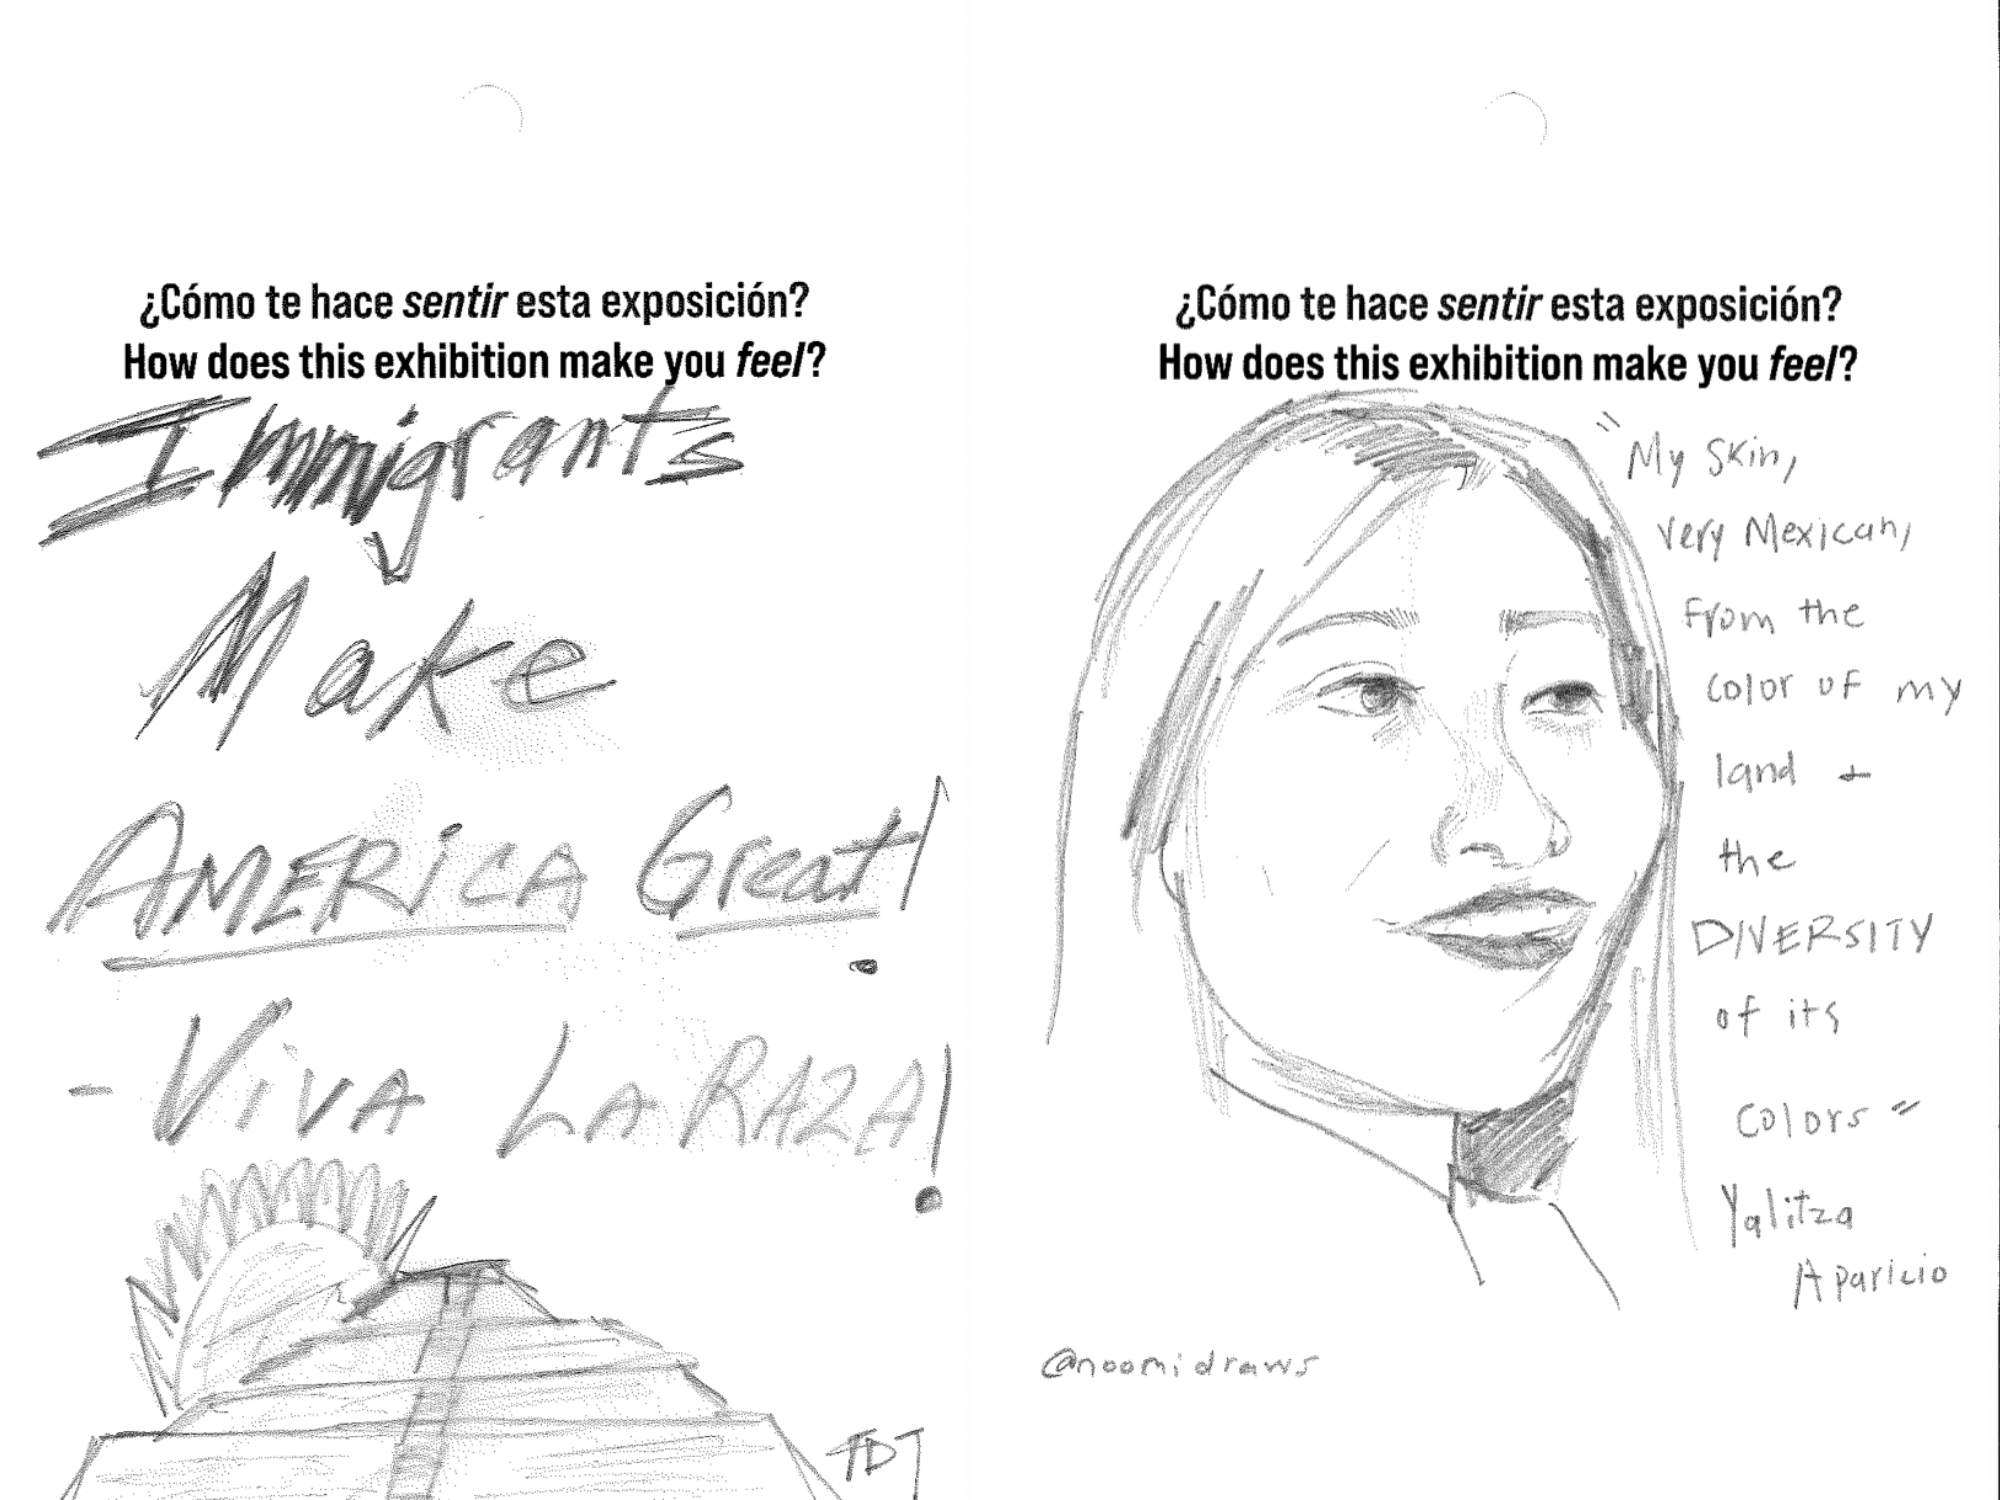 ¿Cómo te hace sentir esta exposición?
How does this exhibition make you feel?
Immigrants
Make
AMERiCA Great!
- ViVA LA RAZA!
TDJ
¿Cómo te hace sentir esta exposición?
How does this exhibition make you feel?
"My skin,
very Mexican,
from the
color of my
land +
the
DIVERSITY
of its
colors"
Yalitza
Aparicio
@noomidraws